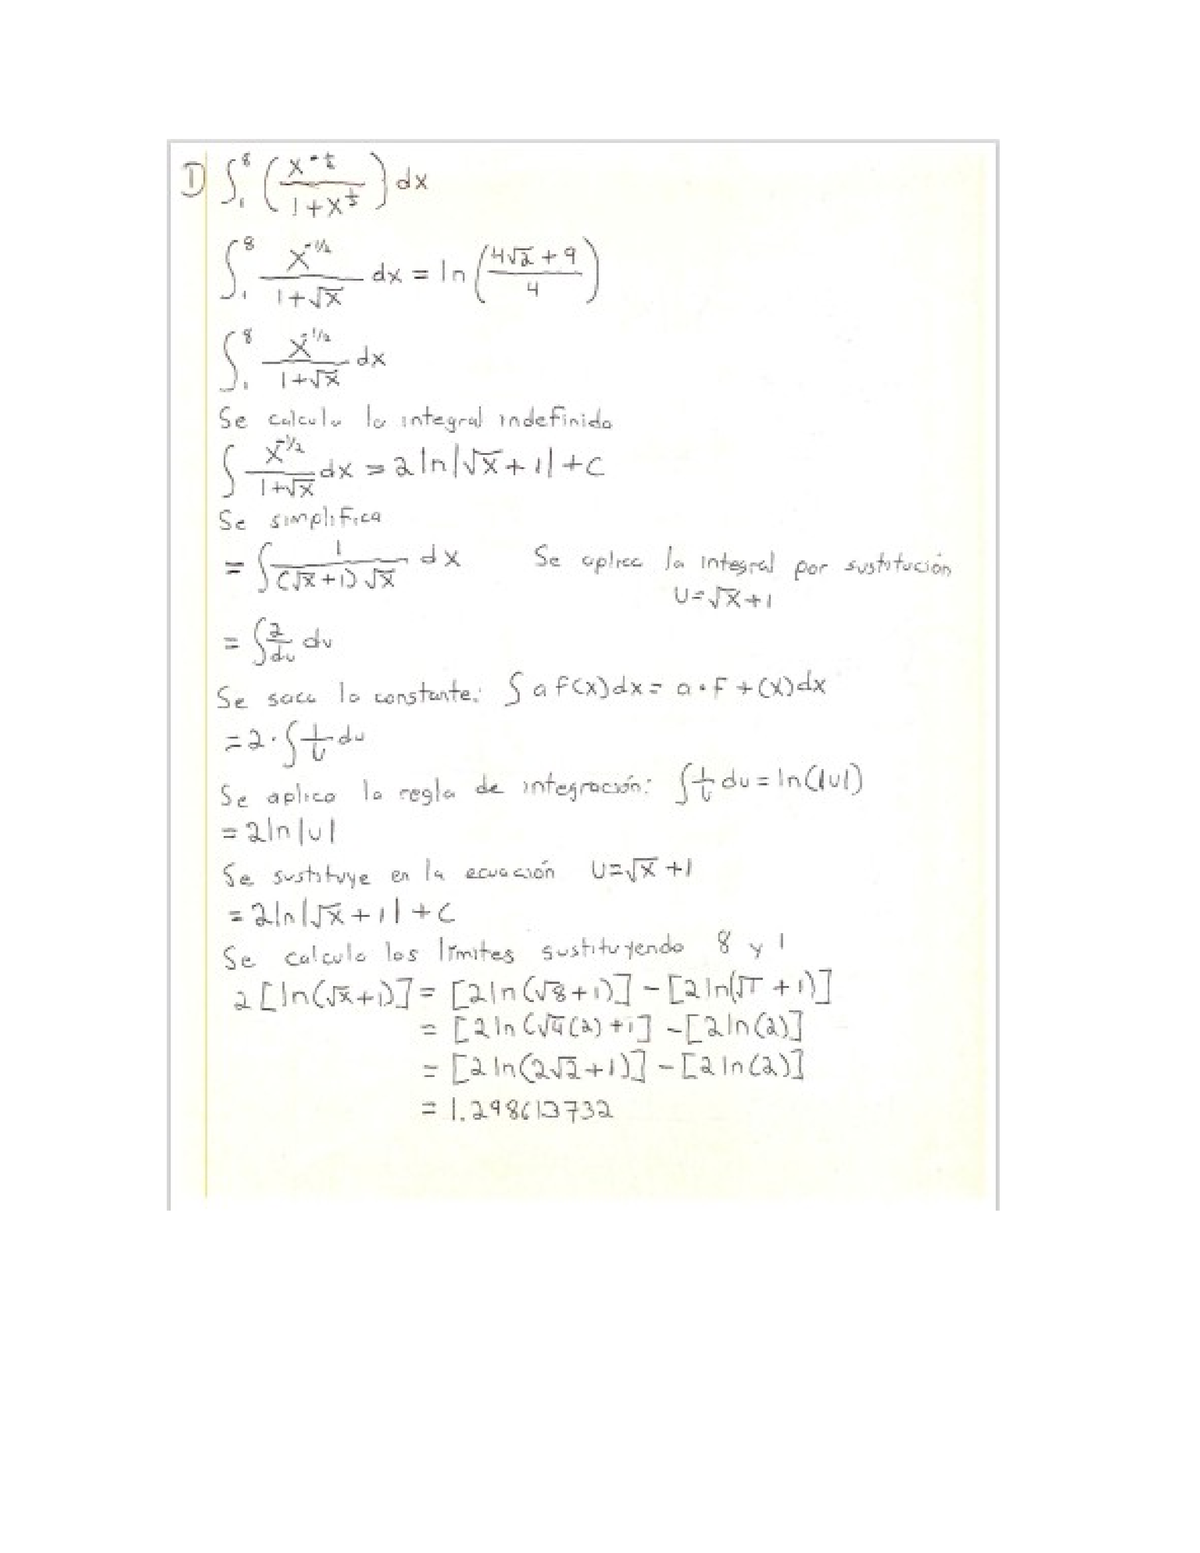 1) ∫₁⁸ (x^(-1/2) / (1+x^(1/2))) dx
∫₁⁸ x^(-1/2) / (1+√x) dx = ln((4√2 + 9) / 4)
∫₁⁸ x^(-1/2) / (1+√x) dx
Se calcula la integral indefinida
∫ x^(-1/2) / (1+√x) dx = 2 ln|√x + 1| + C
Se simplifica
= ∫ 1 / ((√x + 1) √x) dx Se aplica la integral por sustitución
U = √x + 1
= ∫ 2/du du
Se saca la constante: ∫ a f(x) dx = a • F + (x) dx
= 2 · ∫ 1/u du
Se aplica la regla de integración: ∫ 1/u du = ln(|u|)
= 2 ln |u|
Se sustituye en la ecuación U = √x + 1
= 2 ln |√x + 1| + C
Se calcula los límites sustituyendo 8 y 1
2 [ln(√x + 1)] = [2 ln (√8 + 1)] - [2 ln(√1 + 1)]
= [2 ln (√4(2) + 1] - [2 ln(2)]
= [2 ln(2√2 + 1)] - [2 ln (2)]
= 1.298613732